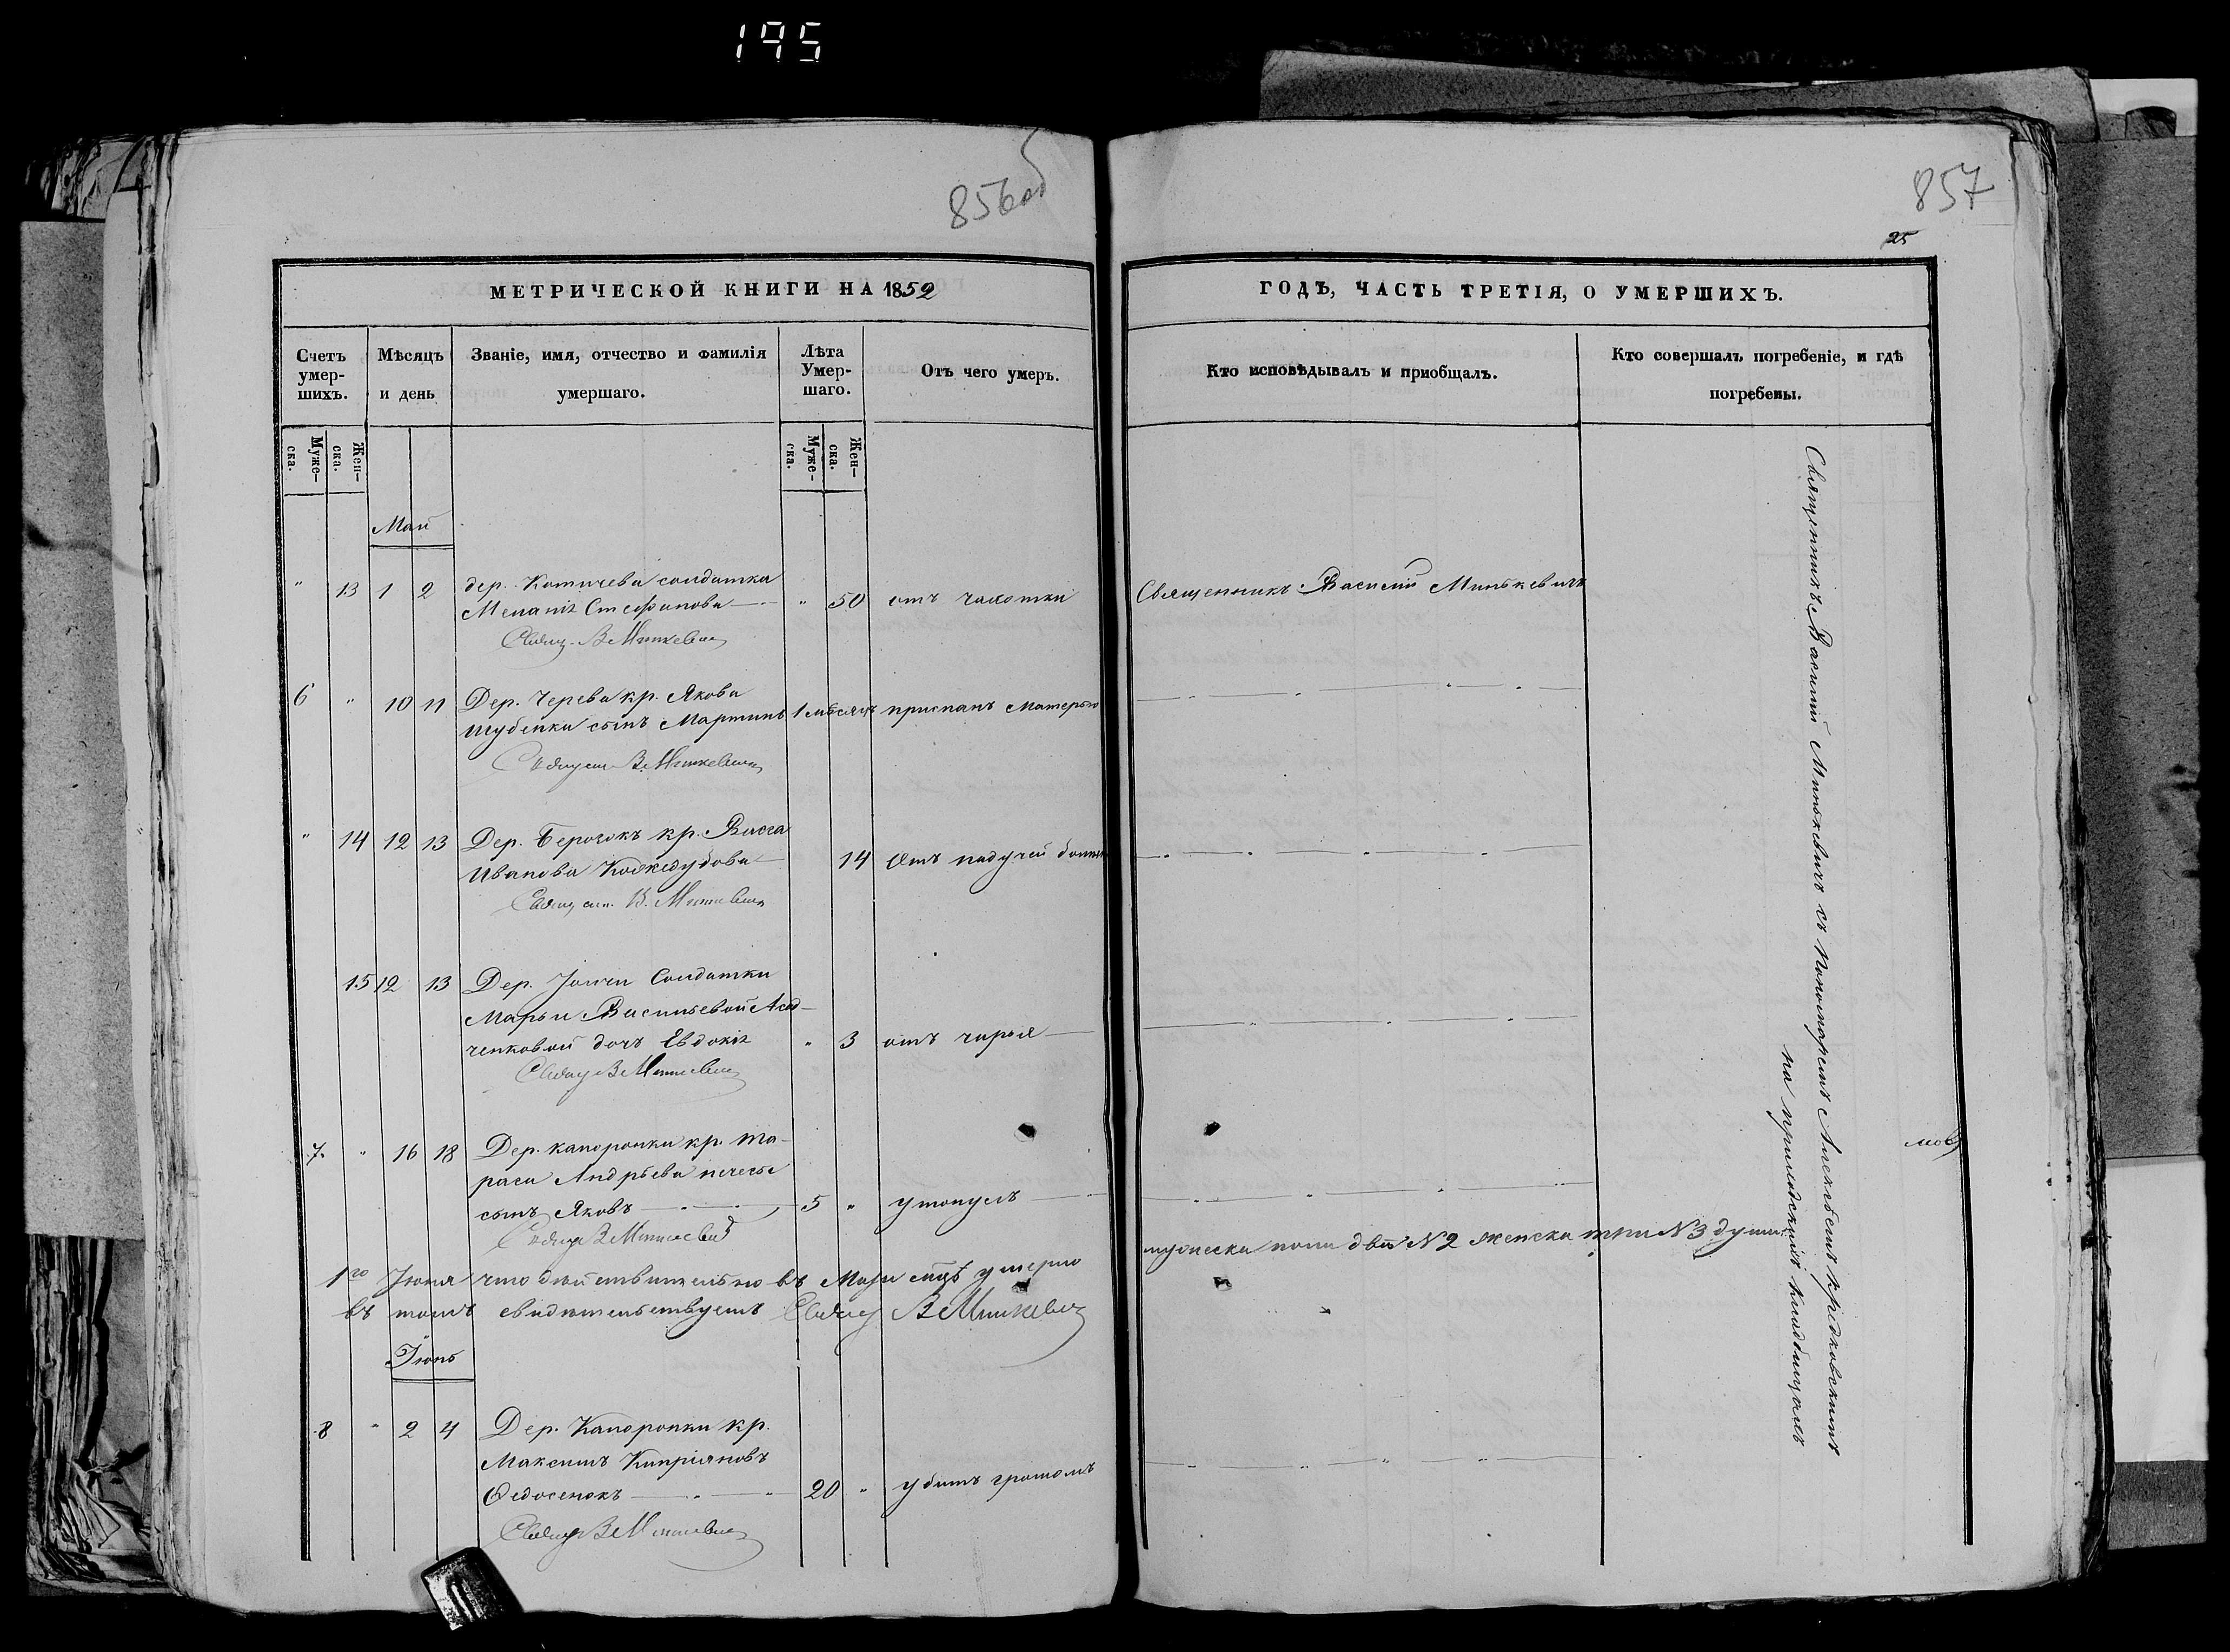 195
856об
857
25
МЕТРИЧЕСКОЙ КНИГИ НА 1852
ГОДЪ, ЧАСТЬ ТРЕТІЯ, О УМЕРШИХЪ.
Счетъ умер-шихъ.
Мѣсяцъ и день
Званіе, имя, отчество и фамилія умершаго.
Лѣта Умер-шаго.
Отъ чего умеръ.
Кто исповѣдывалъ и приобщалъ.
Кто совершалъ погребеніе, и гдѣ погребены.
Муже-ска.
Жен-ска.
Муже-ска.
Жен-ска.
Май
" 13 1 2 дер. Котичева солдатка
Меланія Стефанова " 50 отъ чахотки Священникъ Василій Минькевичъ
Свящ. В Минкевич
6 " 10 11 Дер. Черева кр. Якова
сынъ Мартинъ 1 мѣсяцъ приспанъ Матерью
В. Минкевич
" 14 12 13 Дер. кр. Васса
Иванова 14 Отъ падучей
В. Минкевич
15 12 13 Дер. Солдатки
Марьи Васильевой
ченковой дочь Евдокія " 3 отъ чирья
Свящ В Минкевич
7. " 16 18 Дер. Капоронки кр. Та-
раса Андрѣева
сынъ Яковъ 5 " утонулъ
В Минкевич
1го Іюня что дѣйствительно въ Маѣ умерло мужеска пола два № 2 женска три № 3 души
въ томъ свидѣтельствуетъ Свящ В Минкевич
Іюнь
8 " 2 4 Дер. Капоронки кр.
Максимъ Кипріяновъ
Федосенокъ 20 " убитъ громомъ
Свящ В Минкевич
Священникъ Василій Минькевичъ съ пономаремъ Алексѣемъ
на кладбищахъ